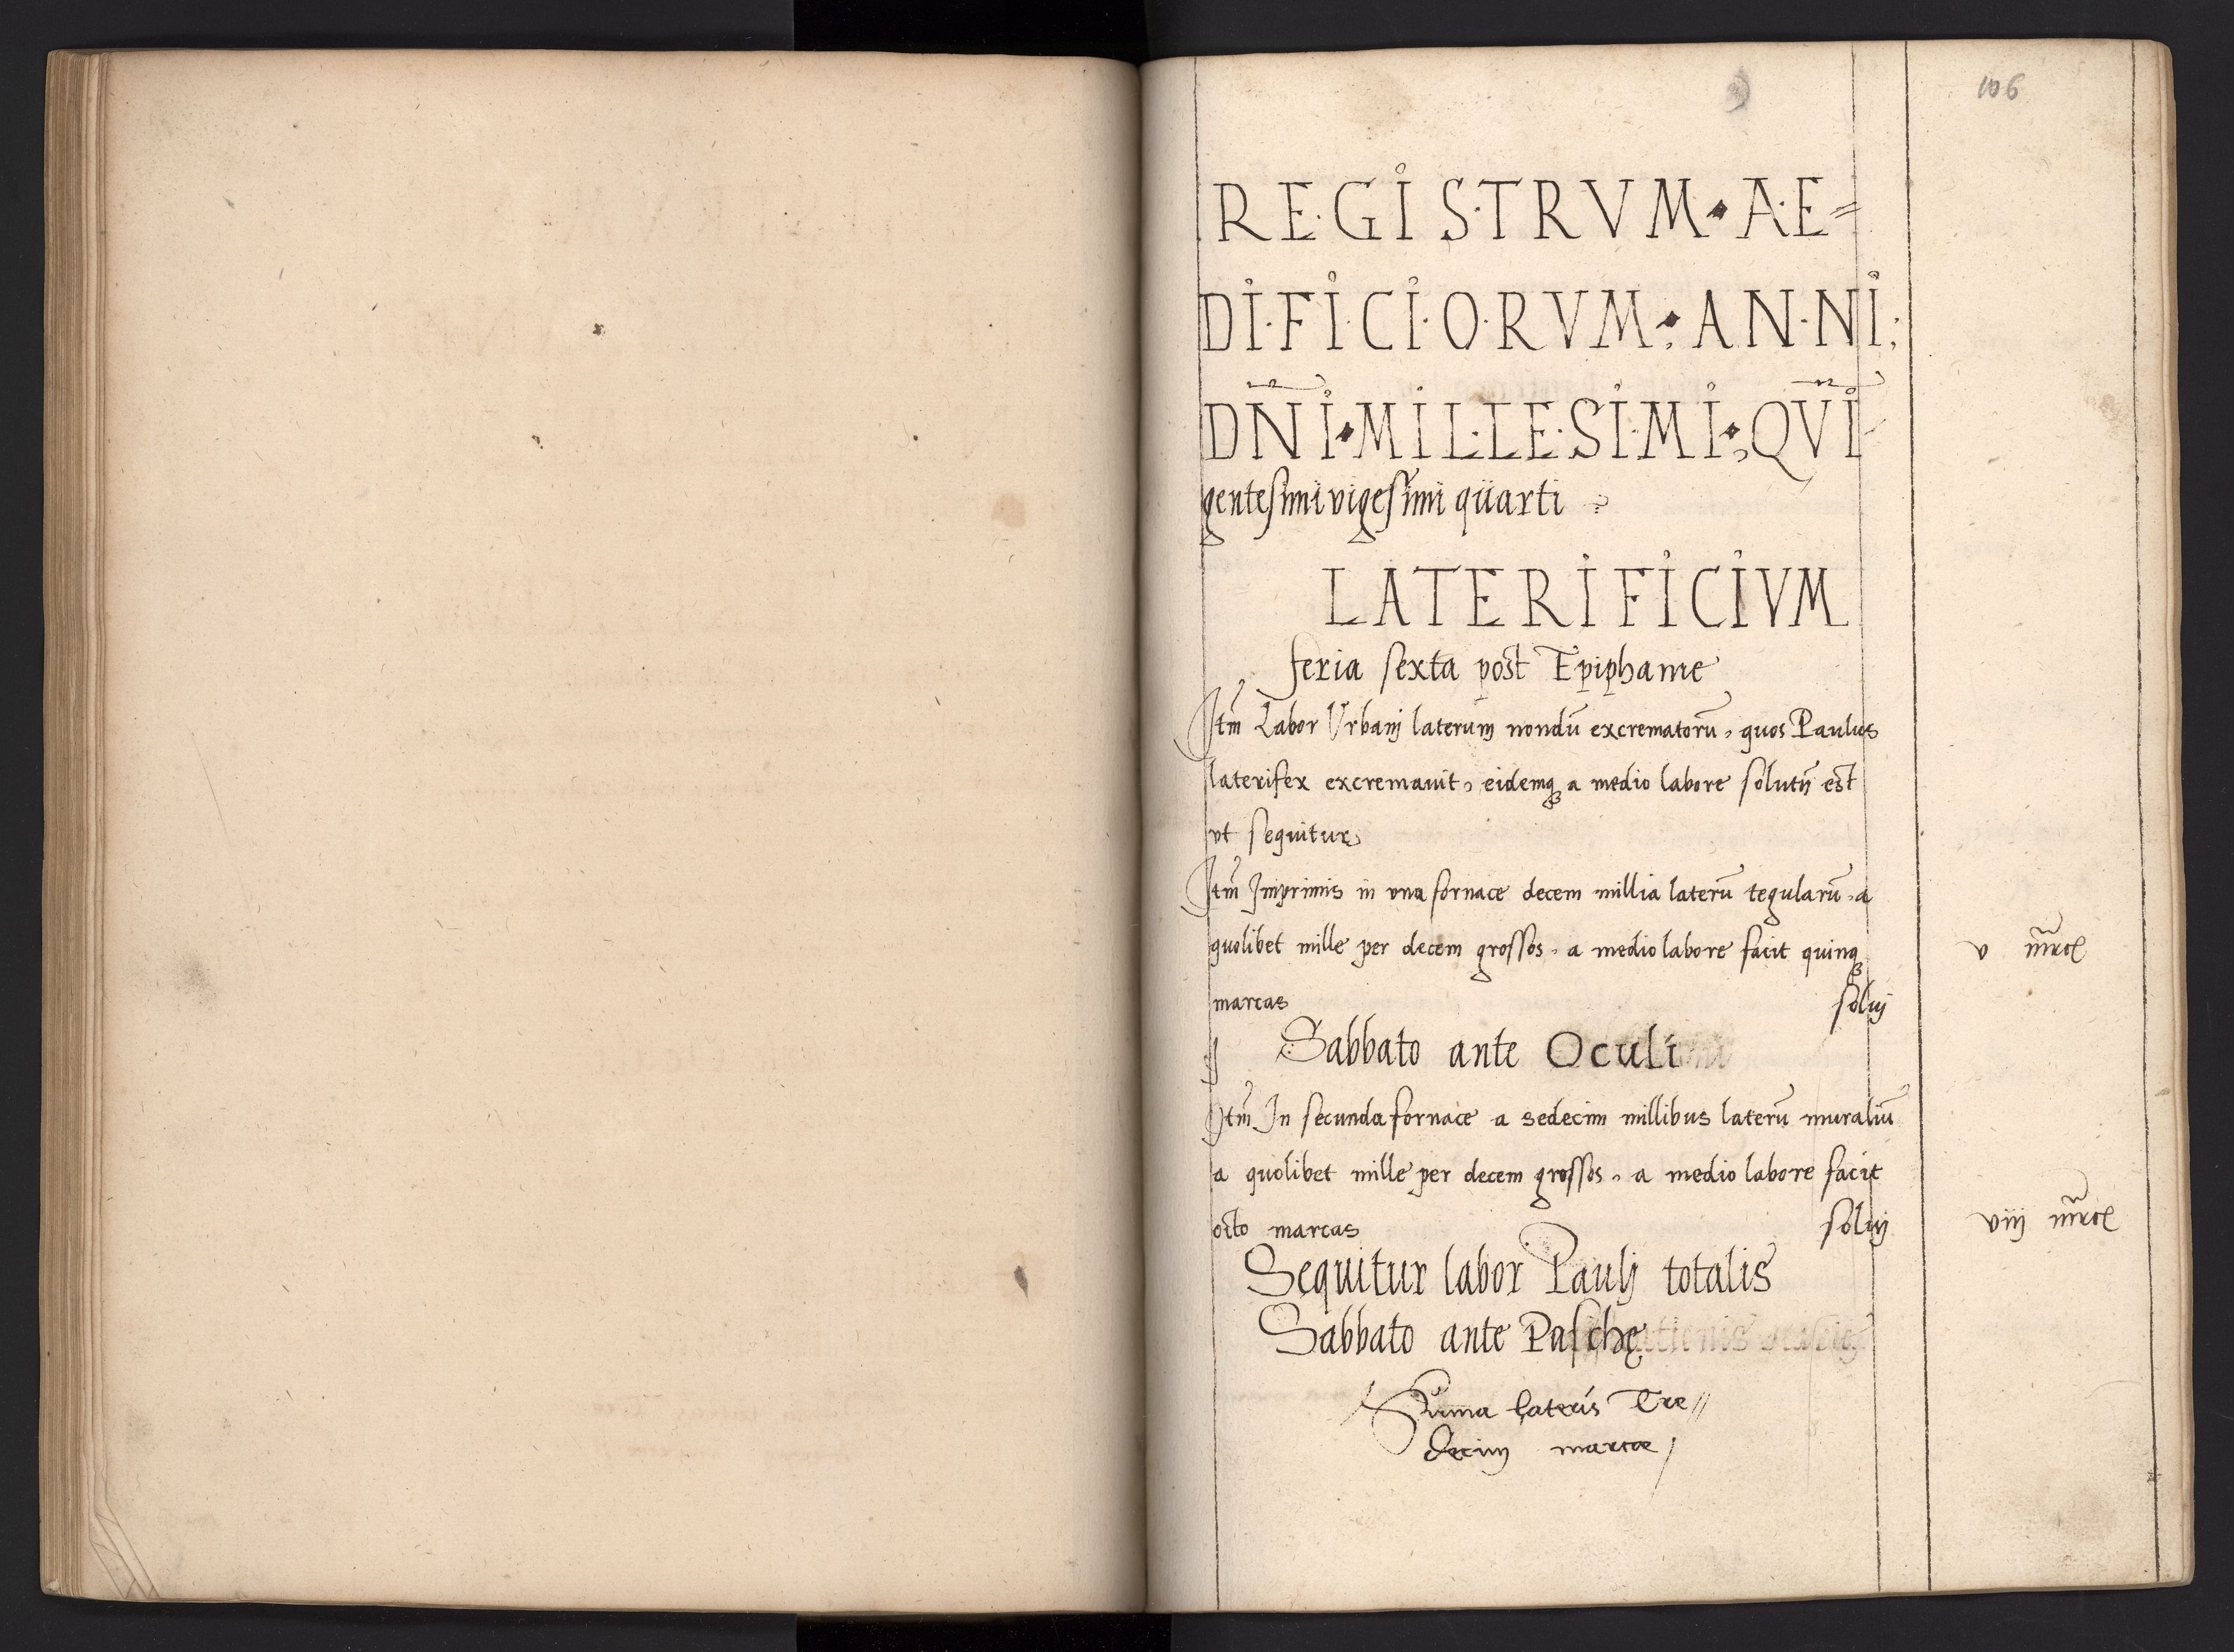 106
REGISTRVM · AE=
DIFICIORVM · ANNI
DÑI · MILLESIMI · QVI
gentesimi vigesimi quarti
LATERIFICIVM
feria sexta post Epiphanie
Itm̃ Labor Urbanj laterum nondū excrematorū, quos Paulus
laterifex excremauit, eidemqȝ a medio labore solutū est
vt sequitur
Itm̃ Imprimis in vna fornace decem millia laterū tegularū, a
quolibet mille per decem grossos, a medio labore facit quinqȝ
v mrc̃
marcas soluj
Sabbato ante Oculi
Itm̃ In secunda fornace a sedecim millibus laterū muraliū
a quolibet mille per decem grossos, a medio labore facit
octo marcas soluj viij mrc̃
Sequitur labor Paulj totalis
Sabbato ante Paschę
Sūma lateris Tre//
decim marcæ